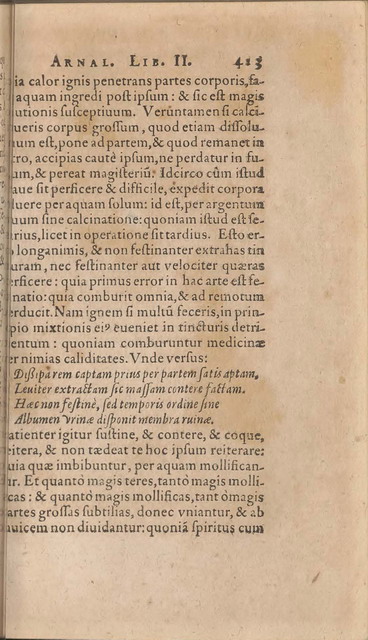 ARNAL. LIB. II. 413
ia calor ignis penetrans partes corporis, fa-
aquam ingredi post ipsum: & sic est magis
utionis susceptiuum. Verūntamen si calci-
ueris corpus grossum, quod etiam dissolu-
uum est, pone ad partem, & quod remanet in
cro, accipias cautè ipsum, ne perdatur in fu-
um, & pereat magisteriū. Idcirco cùm istud
aue sit perficere & difficile, expedit corpora
luere per aquam solum: id est, per argentum
uum sine calcinatione: quoniam istud est se-
rius, licet in operatione sit tardius. Esto er-
longanimis, & non festinanter extrahas tin
uram, nec festinanter aut velociter quæras
erficere: quia primus error in hac arte est fe-
natio: quia comburit omnia, & ad remotum
erducit. Nam ignem si multū feceris, in prin-
pio mixtionis eiꝰ eueniet in tincturis detri-
entum: quoniam comburuntur medicinæ
er nimias caliditates. Vnde versus:
Dissipa rem captam prius per partem satis aptam,
Leuiter extractam sic massam contere factam.
Hæc non festinè, sed temporis ordine sine
Albumen vrinæ disponit membra ruinæ.
atienter igitur sustine, & contere, & coque,
eitera, & non tædeat te hoc ipsum reiterare:
uia quæ imbibuntur, per aquam mollifican-
ur. Et quantò magis teres, tantò magis molli-
cas: & quantò magis mollificas, tantò magis
artes grossas subtilias, donec vniantur, & ab
uicem non diuidantur: quoniā spiritus cum